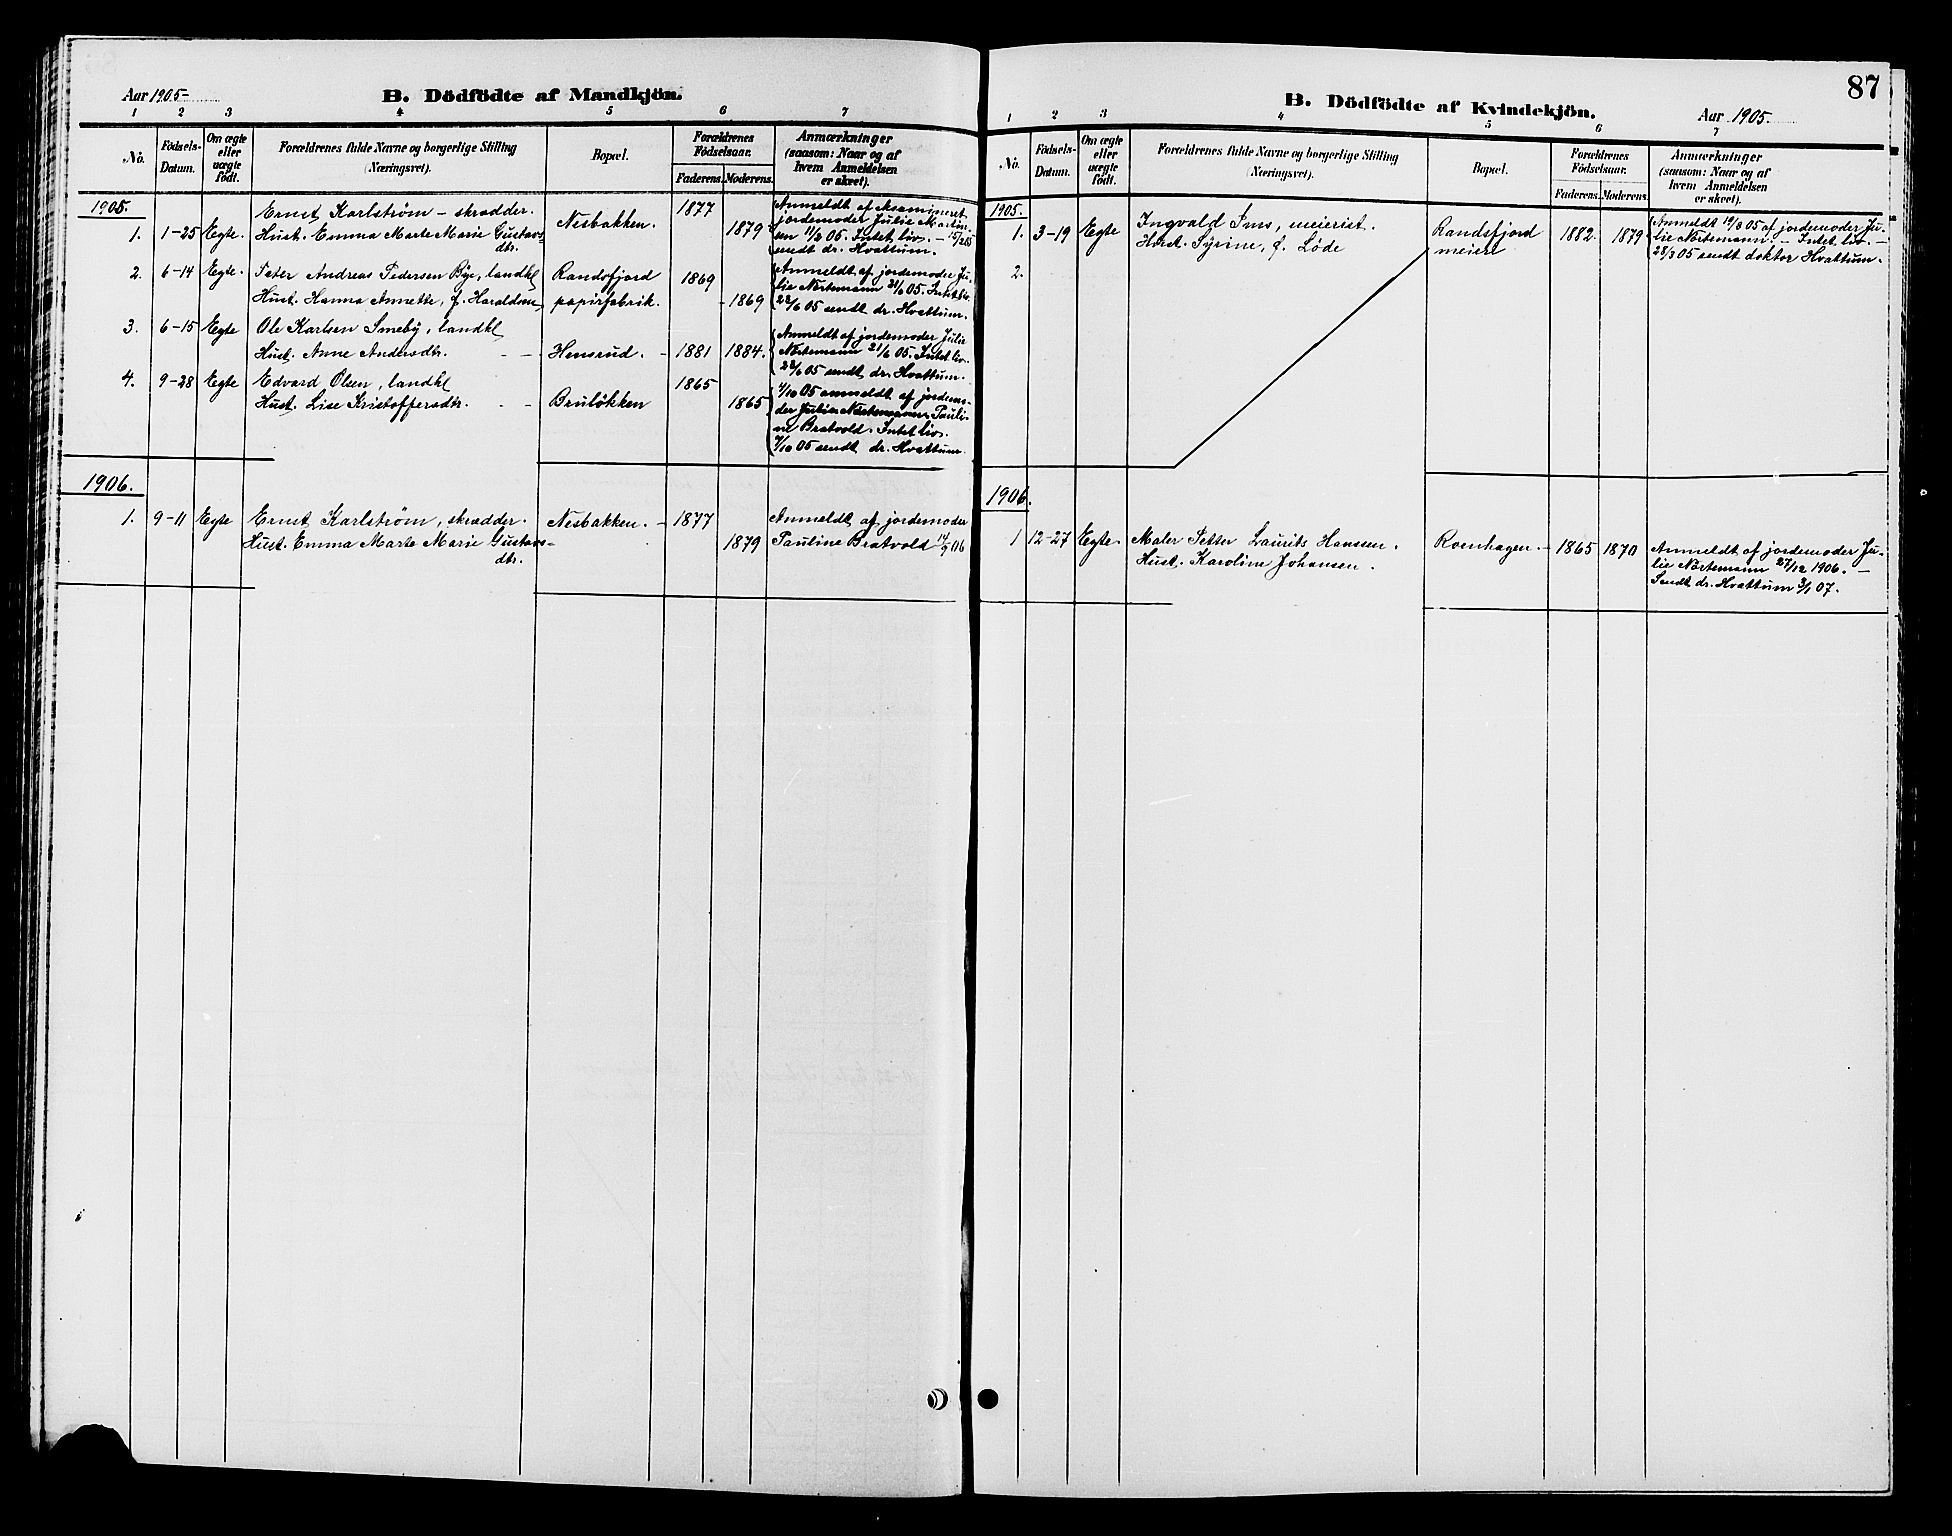 Aar 1905.
B. Dödfödte af Mandkjön.
1 2 3 4 5 6 7
No.
Födsels-
Datum.
Om ægte
eller
uægte
född.
Forældrenes fulde Navne og borgerlige Stilling
(Næringsvei).
Bopæl.
Forældrenes
Födselsaar.
Faderens. Moderens.
Anmærkninger
(saasom: Naar og af
hvem Anmeldelsen
er skeet).
1905.
1. 1-25 Egte.
Ernst Karlstrøm - skrædder.
Hust. Emma Marte Marie Gustavs-
dtr.
Nesbakken.
1877
1879
Anmeldt af eksamineret
jordemoder Julie Martin-
sen 11/2 05. Intet liv. - 15/2 05
sendt dr. Hvattum.
2. 6-14 Egte.
Peter Andreas Pedersen Bye, landhl
Hust. Hanna Annette, f. Haraldsen
Randsfjord
papirfabrik.
1869
1869
Anmeldt af jordemoder Ju-
lie Nörtemann 21/6 05. Intet liv.
22/6 05 sendt dr. Hvattum.
3. 6-15 Egte
Ole Karlsen Smeby, landhl
Hust. Anne Andersdtr.
Hensrud.
1881 1884.
Anmeldt af jordemoder Julie
Nörtemann 21/6 05. Intet liv.
22/6 05 sendt dr. Hvattum.
4. 9-28 Egte
Edvard Olsen, landhl
Hust. Lise Kristoffersdtr.
Bruløkken
1865
1865
4/10 05 anmeldt af jordemo-
der Julie Nörtemann Pauli-
ne Bratvold. Intet liv.
7/10 05 sendt dr. Hvattum.
1906.
1. 9-11 Egte
Ernst Karlstrøm, skrædder.
Hust. Emma Marte Marie Gustavs-
dtr.
Nesbakken.
1877
1879
Anmeldt af jordemoder
Pauline Bratvold 14/9 06
87
B. Dödfödte af Kvindekjön.
Aar 1905.
1 2 3 4 5 6 7
No.
Födsels-
Datum.
Om ægte
eller
uægte
född.
Forældrenes fulde Navne og borgerlige Stilling
(Næringsvei).
Bopæl.
Forældrenes
Födselsaar.
Faderens. Moderens.
Anmærkninger
(saasom: Naar og af
hvem Anmeldelsen
er skeet).
1905.
1. 3-19 Egte
Ingvald Inns, meierist.
Hust. Sysine, f. Løde
Randsfjord
meieri
1882. 1879
Anmeldt 19/3 05 af jordemoder Ju-
lie Nörtemann. - Intet liv. -
23/3 05 sendt doktor Hvattum.
2.
1906.
1 12-27 Egte.
Maler Petter Laurits Hansen.
Hust. Karoline Johansen.
Rosenhagen.
1865 1870
Anmeldt af jordemoder Ju-
lie Nörtemann 27/12 1906. -
Sendt dr. Hvattum 3/1 07.